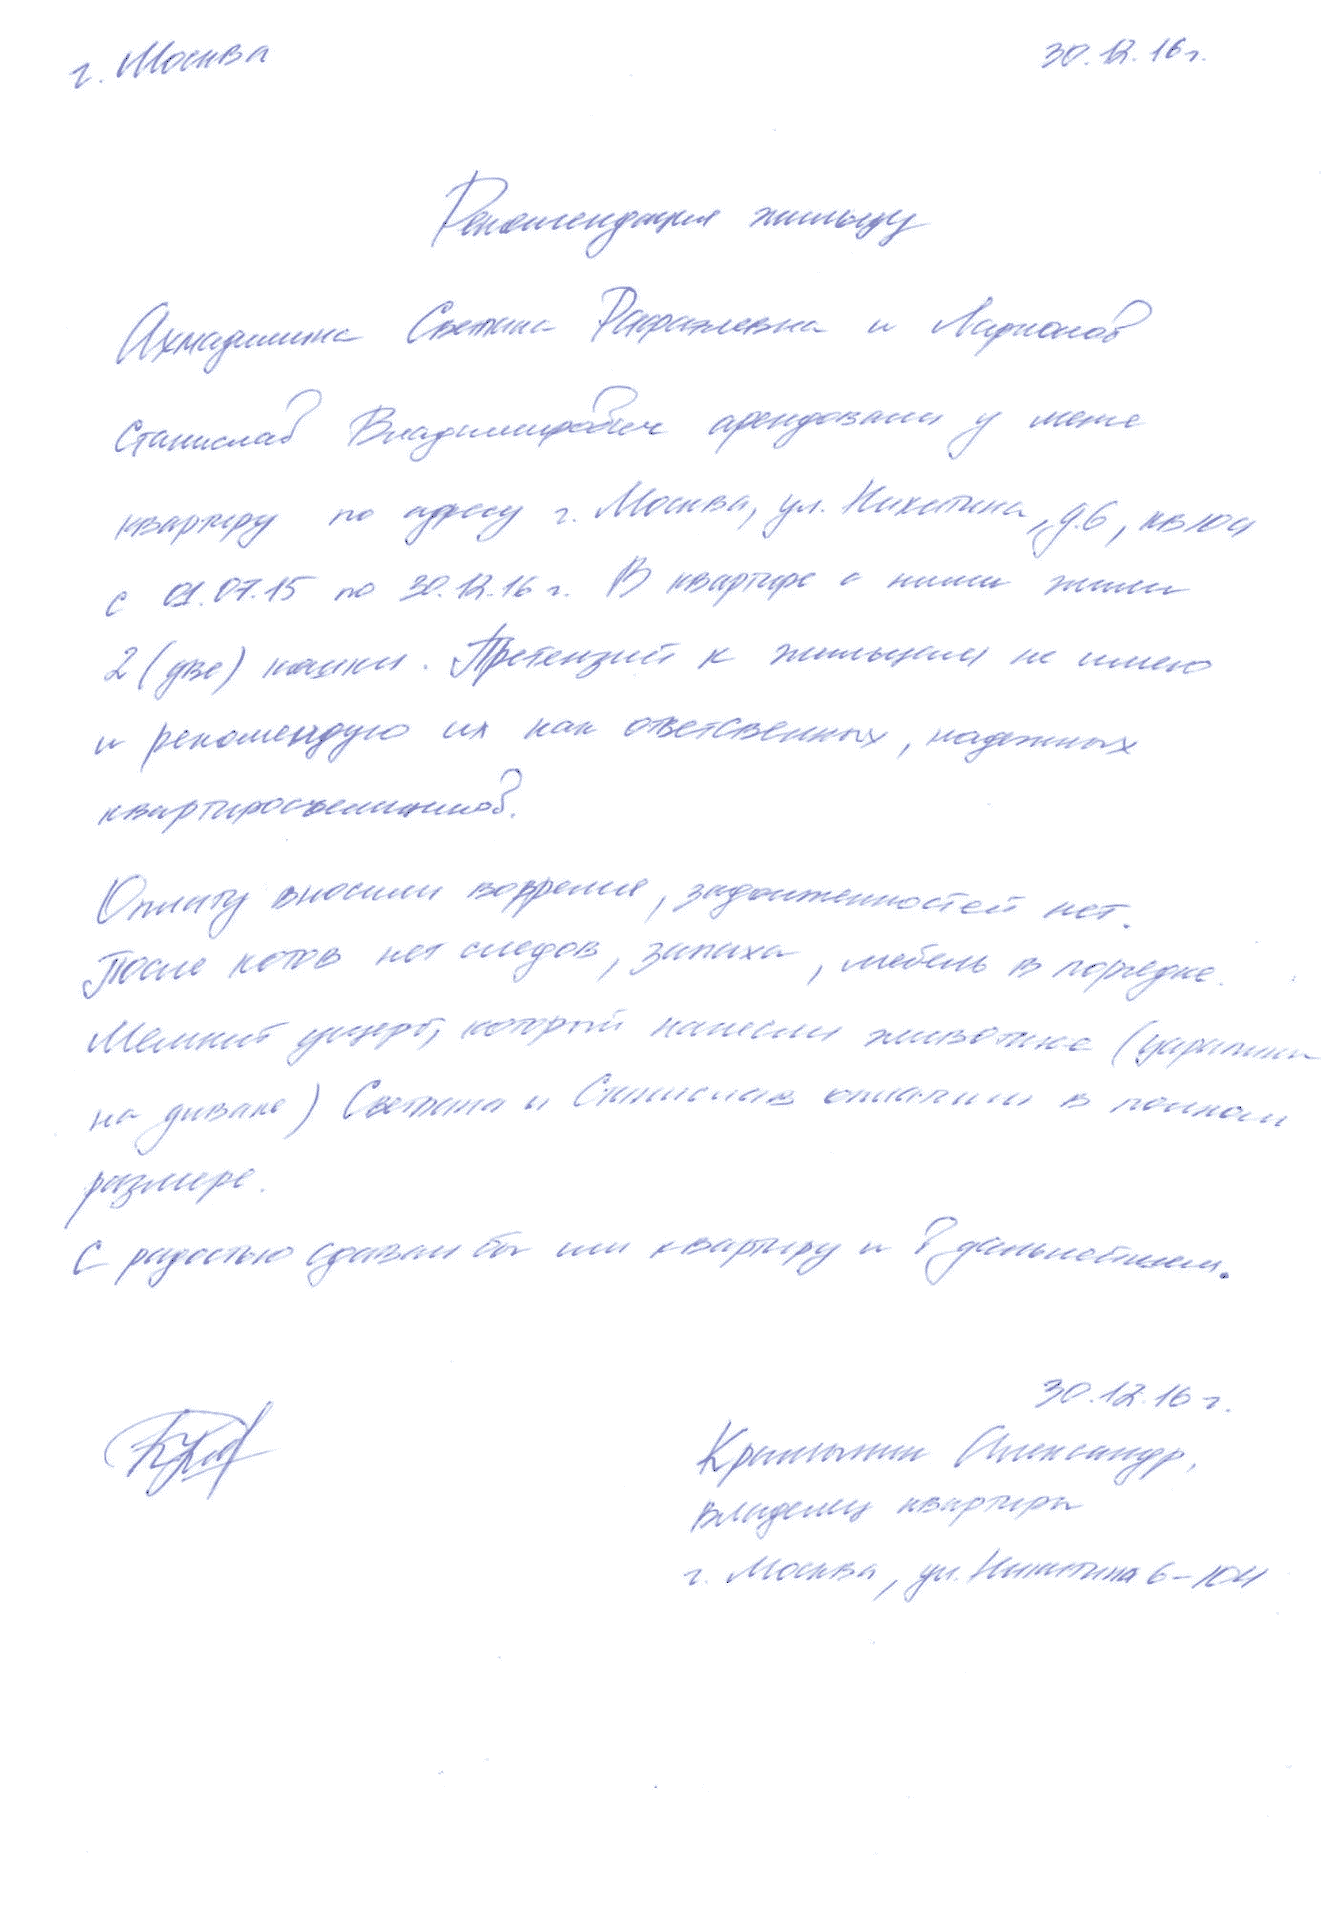 г. Москва 30.12.16 г.
Рекомендация жильцу
Ахмадишина Светлана Рафаэлевна и Ларионов
Станислав Владимирович арендовали у меня
квартиру по адресу г. Москва, ул. Никитина, д.6, кв 104
с 01.07.15 по 30.12.16 г. В квартире с ними жили
2 (две) кошки. Претензий к жильцам не имею
и рекомендую их как ответсвенных, надежных
квартиросъемщиков.
Оплату вносили вовремя, задолженностей нет.
После котов нет следов, запаха, мебель в порядке.
Мелкий ущерб, который нанесли животные (царапины
на диване) Светлана и Станислав оплатили в полном
размере.
С радостью сдавал бы им квартиру и в дальнейшем.
30.12.16 г.
Александр,
владелец квартиры
г. Москва, ул. Никитина 6-104